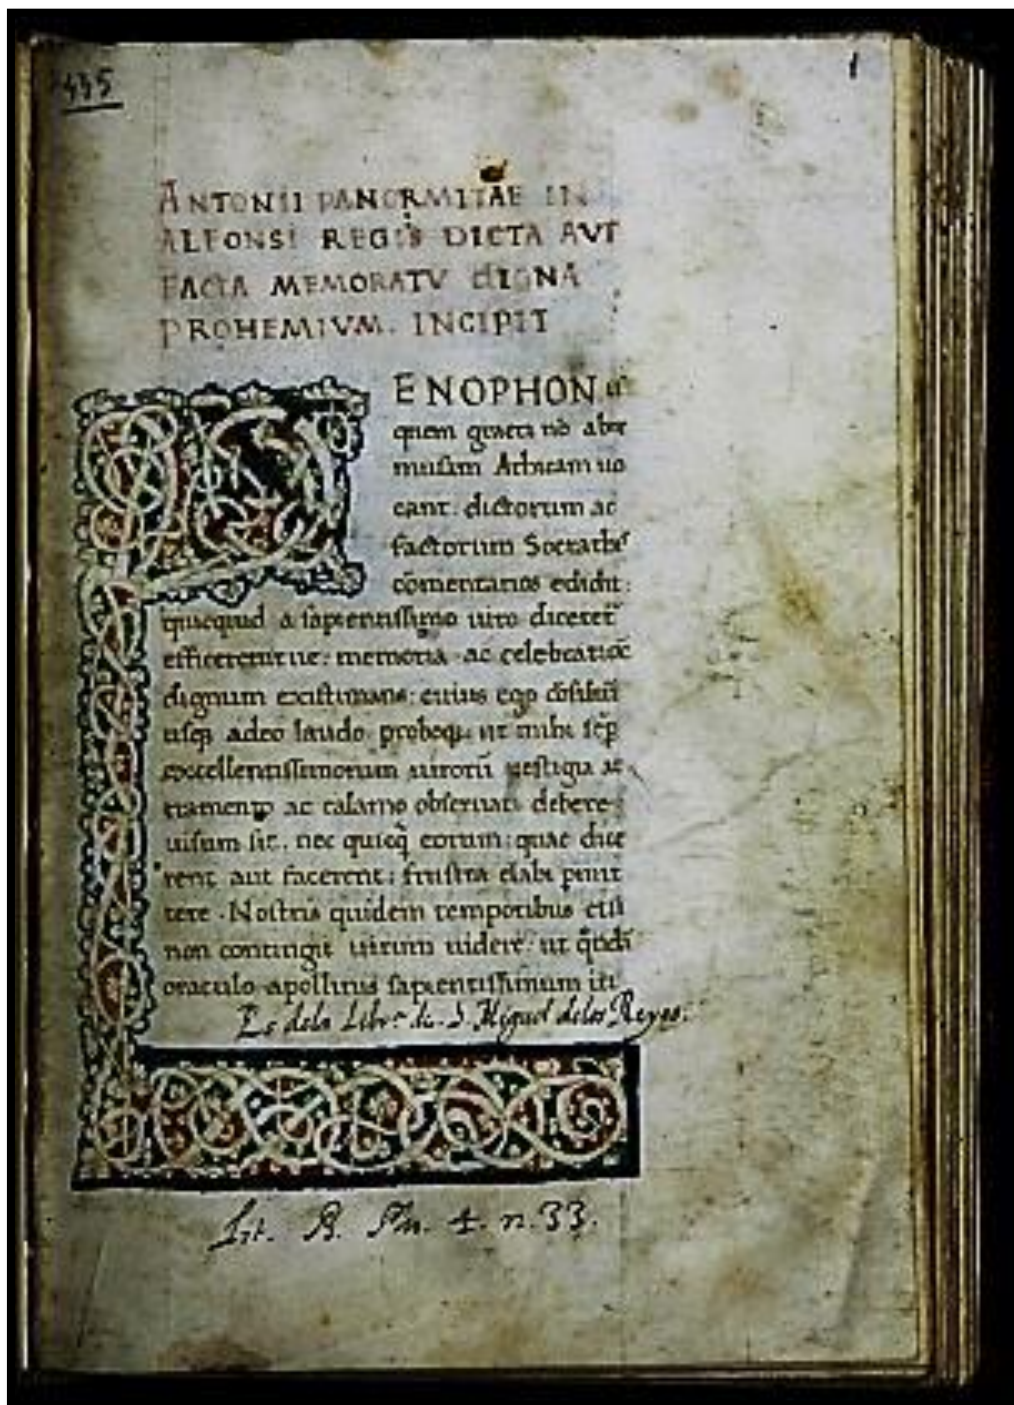 445
1
ANTONII PANORMITAE IN
ALFONSI REGIS DICTA AVT
FACTA MEMORATV DIGNA
PROHEMIVM. INCIPIT
ENOPHON
quem graeci nō abre
musam Atticam uo
cant. dictorum ac
factorum Socratis
cōmentarios edidit:
quicquid a sapientissimo uiro diceret̄
efficereturue: memoria ac celebratiōe
dignum existimans: cuius ego cōsiliū
usq; adeo laudo proboq; ut mihi sēp
excellentissimorum uirorū uestigia at
tramento ac calamo obseruari debere
uisum sit. nec quicq̄ eorum: quae dice
rent aut facerent: frustra elabi permit
tere. Nostris quidem temporibus etsi
non contingit uirum uidere: ut q̄ndā
oraculo apollinis sapientissimum iu
Es dela Libr.ª de S. Miguel delos Reyes.
Lit. B. Plu. 4. n. 33.